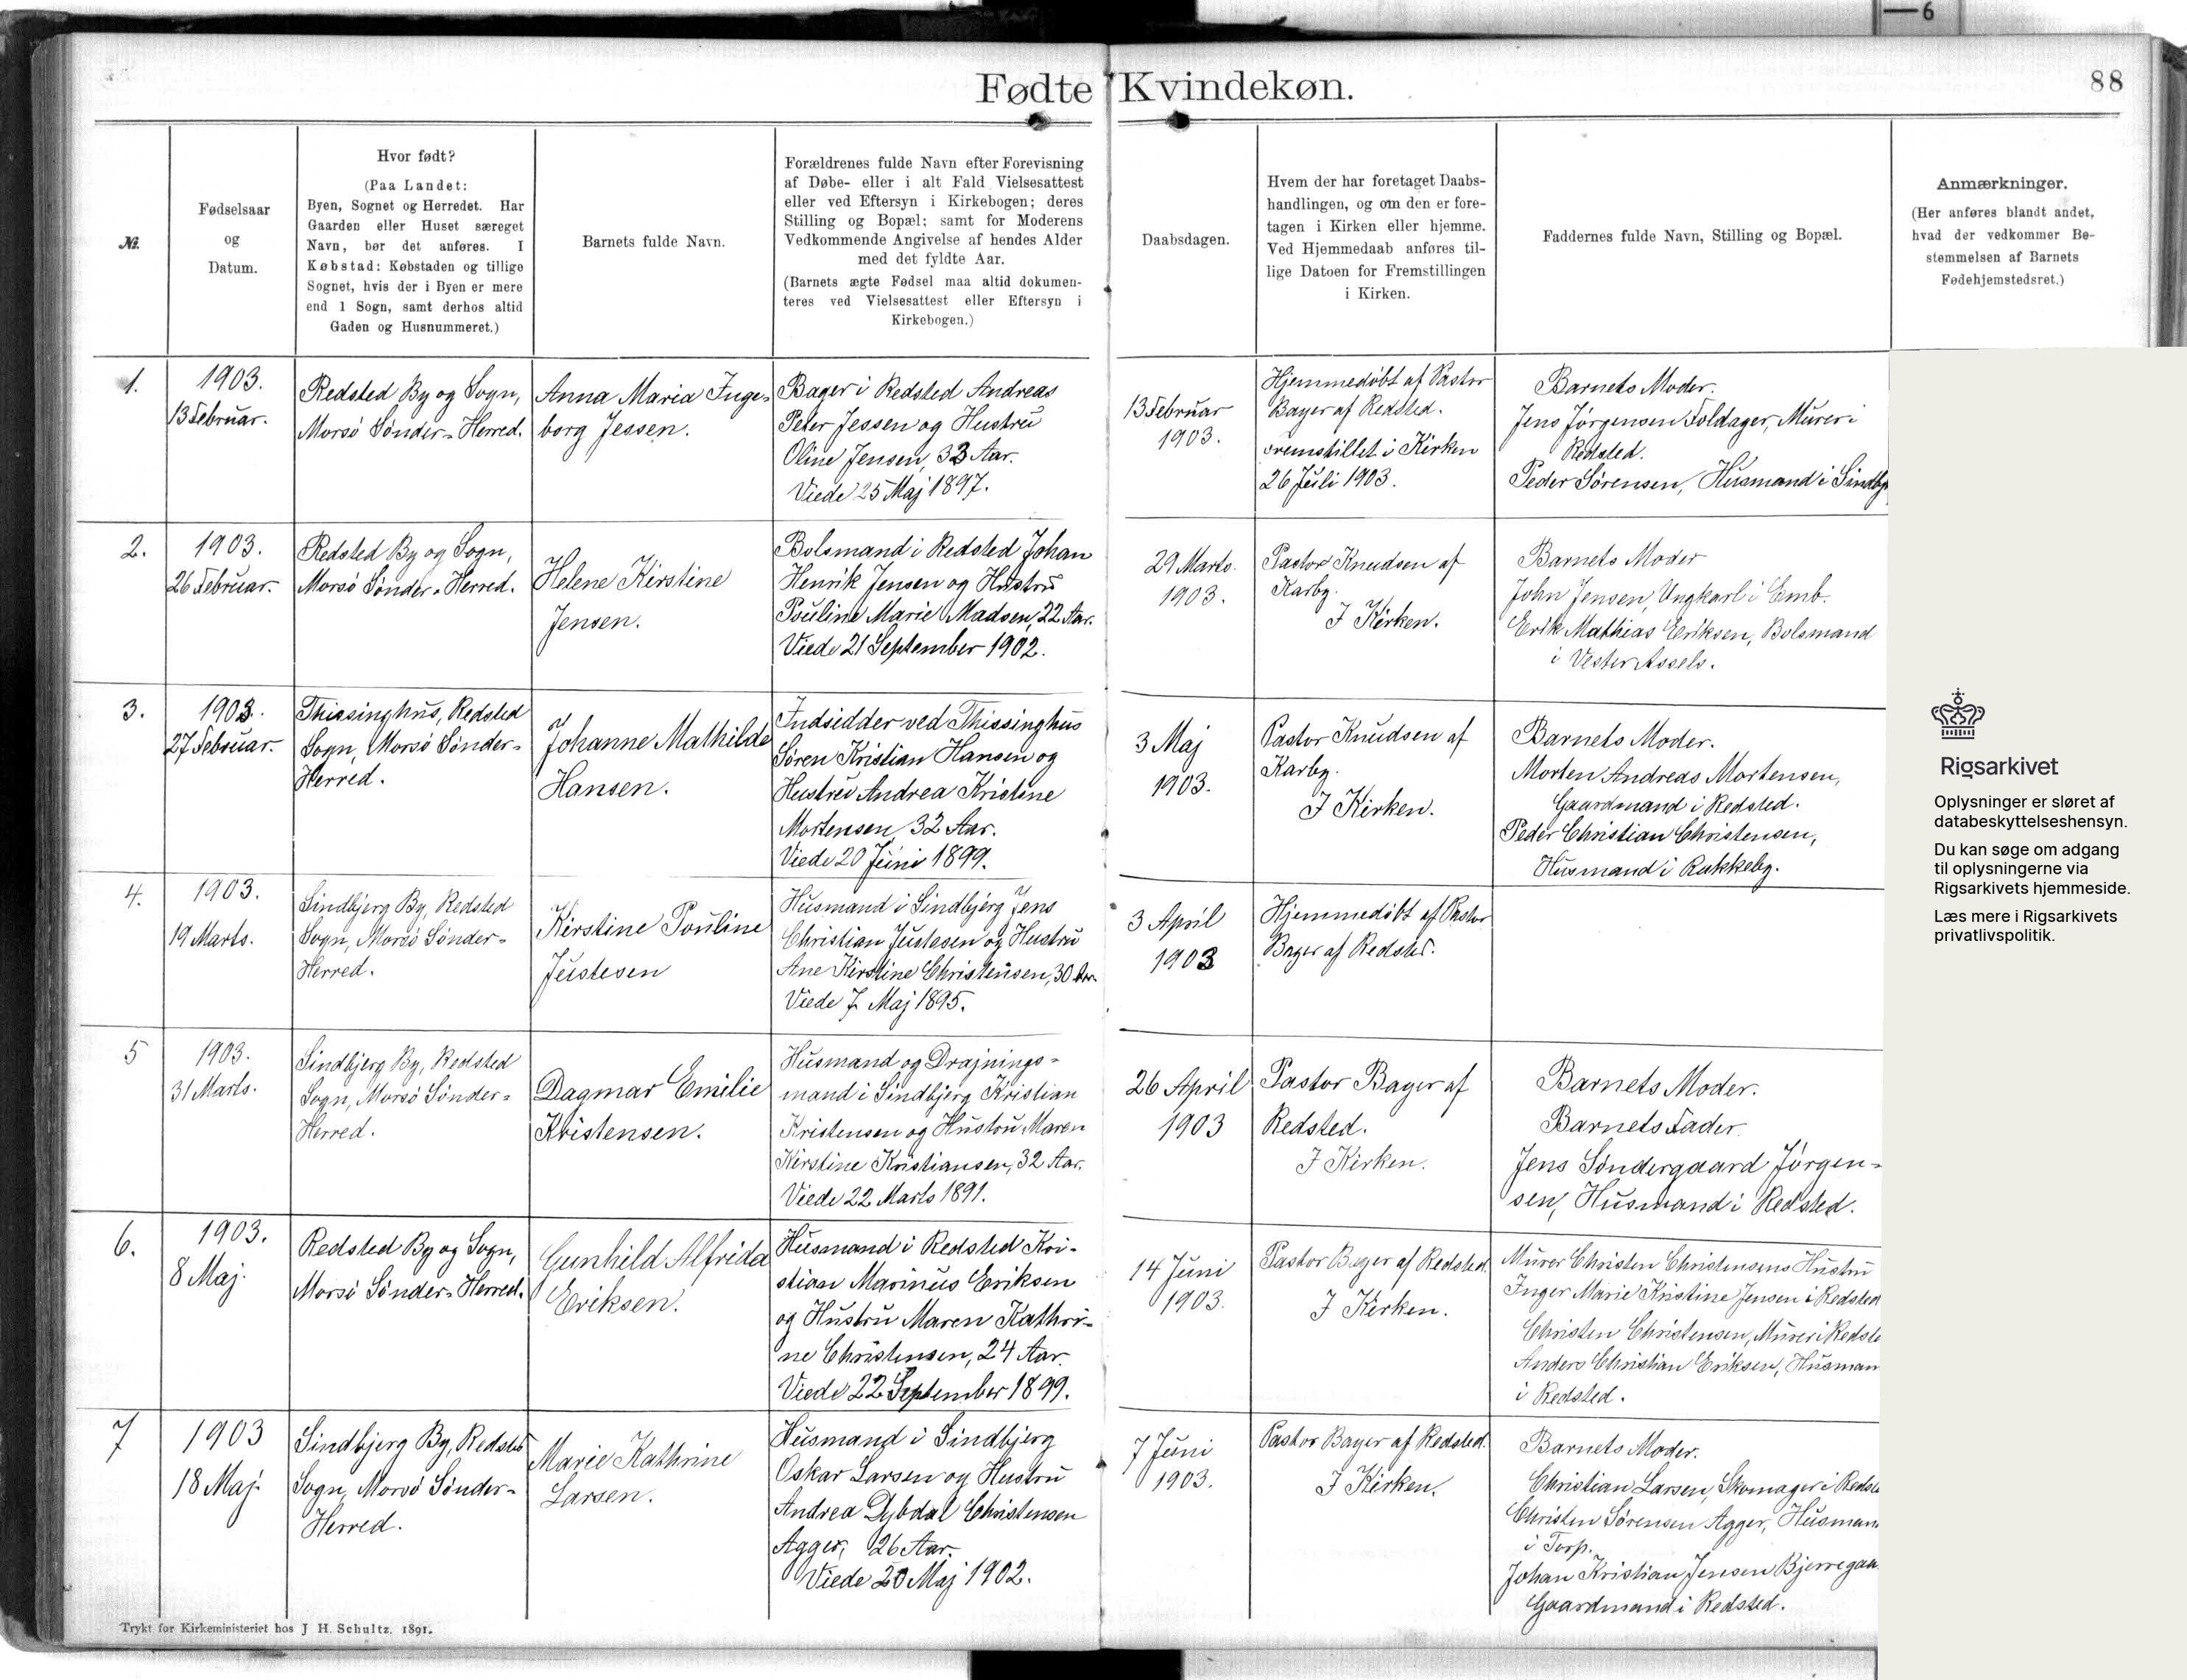 6
Fødte Kvindekøn.
88
№.
Fødselsaar
og
Datum.
Hvor født?
(Paa Landet:
Byen, Sognet og Herredet. Har
Gaarden eller Huset særeget
Navn, bør det anføres. I
Købstad: Købstaden og tillige
Sognet, hvis der i Byen er mere
end 1 Sogn, samt derhos altid
Gaden og Husnummeret.)
Barnets fulde Navn.
Forældrenes fulde Navn efter Forevisning
af Døbe- eller i alt Fald Vielsesattest
eller ved Eftersyn i Kirkebogen; deres
Stilling og Bopæl; samt for Moderens
Vedkommende Angivelse af hendes Alder
med det fyldte Aar.
(Barnets ægte Fødsel maa altid dokumen-
teres ved Vielsesattest eller Eftersyn i
Kirkebogen.)
Daabsdagen.
Hvem der har foretaget Daabs-
handlingen, og om den er fore-
tagen i Kirken eller hjemme.
Ved Hjemmedaab anføres til-
lige Datoen for Fremstillingen
i Kirken.
Faddernes fulde Navn, Stilling og Bopæl.
Anmærkninger.
(Her anføres blandt andet,
hvad der vedkommer Be-
stemmelsen af Barnets
Fødehjemstedsret.)
1.
1903.
13 Februar.
Redsted By og Sogn,
Morsö Sönder-Herred.
Anna Maria Inge-
borg Jessen.
Bager i Redsted Andreas
Peter Jessen og Hustru
Oline Jensen, 33 Aar.
Viede 25 Maj 1897.
13 Februar
1903.
Hjemmedöbt af Pastor
Bayer af Redsted.
Fremstillet i Kirken
26 Juli 1903.
Barnets Moder.
Jens Jörgensen Foldager, Murer i
Redsted.
Peder Sörensen, Husmand i Sindbj
2.
1903.
26 Februar.
Redsted By og Sogn,
Morsö Sönder-Herred.
Helene Kirstine
Jensen.
Bolsmand i Redsted Johan
Henrik Jensen og Hustru
Pouline Marie Madsen, 22 Aar.
Viede 21 September 1902.
29 Marts.
1903.
Pastor Knudsen af
Karby.
I Kirken.
Barnets Moder
John Jensen, Ungkarl i Emb.
Erik Mathias Eriksen, Bolsmand
i Vester Assels.
3.
1903.
27 Februar.
Thissinghus, Redsted
Sogn, Morsö Sönder-
Herred.
Johanne Mathilde
Hansen.
Indsidder ved Thissinghus
Sören Kristian Hansen og
Hustru Andrea Kristine
Mortensen, 32 Aar.
Viede 20 Juni 1899.
3 Maj
1903.
Pastor Knudsen af
Karby.
I Kirken.
Barnets Moder.
Morten Andreas Mortensen,
Gaardmand i Redsted.
Peder Christian Christensen,
Husmand i Rakkeby.
4.
1903.
19 Marts.
Sindbjerg By, Redsted
Sogn, Morsö Sönder-
Herred.
Kirstine Pouline
Justesen
Husmand i Sindbjerg Jens
Christian Justesen og Hustru
Ane Kirstine Christensen, 30 Aar.
Viede 7 Maj 1895.
3 April
1903
Hjemmedöbt af Pastor
Bayer af Redsted.
5
1903.
31 Marts.
Sindbjerg By, Redsted
Sogn, Morsö Sönder-
Herred.
Dagmar Emilie
Kristensen.
Husmand og Drajnings-
mand i Sindbjerg Kristian
Kristensen og Hustru Maren
Kirstine Kristiansen, 32 Aar.
Viede 22 Marts 1891.
26 April
1903
Pastor Bayer af
Redsted.
I Kirken.
Barnets Moder.
Barnets Fader.
Jens Söndergaard Jörgen-
sen, Husmand i Redsted.
6.
1903.
8 Maj.
Redsted By og Sogn,
Morsö Sönder-Herred.
Gunhild Alfrida
Eriksen.
Husmand i Redsted Kri-
stian Marinus Eriksen
og Hustru Maren Kathri-
ne Christensen, 24 Aar.
Viede 22 September 1899.
14 Juni
1903.
Pastor Bayer af Redsted.
I Kirken.
Murer Christen Christensens Hustru
Inger Marie Kristine Jensen i Redsted
Christen Christensen, Murer i Redste
Anders Christian Eriksen, Husman
i Redsted.
7
1903
18 Maj.
Sindbjerg By, Redsted
Sogn, Morsö Sönder-
Herred.
Marie Kathrine
Larsen.
Husmand i Sindbjerg
Oskar Larsen og Hustru
Andrea Dybdal Christensen
Agger, 26 Aar.
Viede 20 Maj 1902.
7 Juni
1903.
Pastor Bayer af Redsted.
I Kirken.
Barnets Moder.
Christian Larsen, Skomager i Redste
Christen Sörensen Agger, Husman
i Torp.
Johan Kristian Jensen Bjerregaa
Gaardmand i Redsted.
Trykt for Kirkeministeriet hos J H. Schultz. 1891.
Rigsarkivet
Oplysninger er sløret af
databeskyttelseshensyn.
Du kan søge om adgang
til oplysningerne via
Rigsarkivets hjemmeside.
Læs mere i Rigsarkivets
privatlivspolitik.